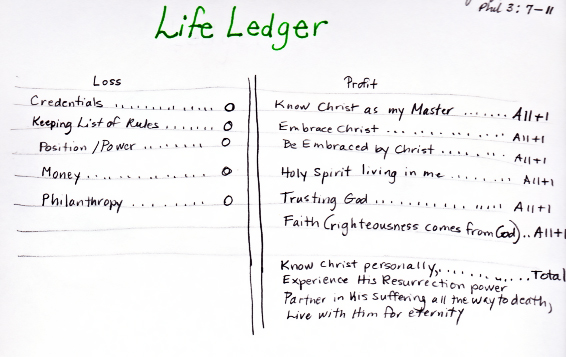 Phil 3:7-11
Life Ledger
Loss
Credentials .............. 0
Keeping List of Rules ....... 0
Position/Power ....... 0
Money ............... 0
Philanthropy ......... 0
Profit
Know Christ as my Master ....... All+1
Embrace Christ .............. All+1
Be Embraced by Christ ....... All+1
Holy Spirit living in me ........ All+1
Trusting God ............... All+1
Faith (righteousness comes from God) .. All+1
Know Christ personally, ............ Total
Experience His Resurrection power
Partner in His Suffering all the way to death,
Live with Him for eternity